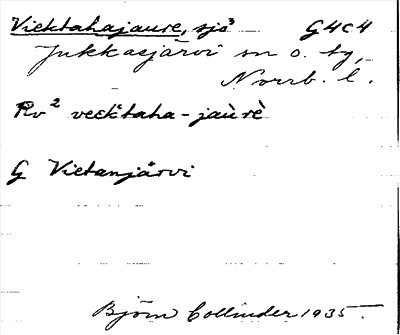 Viektahajaure, sjö³ G4c4
Jukkasjärvi sn o. ty,
Norrb. l.
Rv² veiktaha-jaùrè
G Vietanjärvi
Björn Collinder 1935.